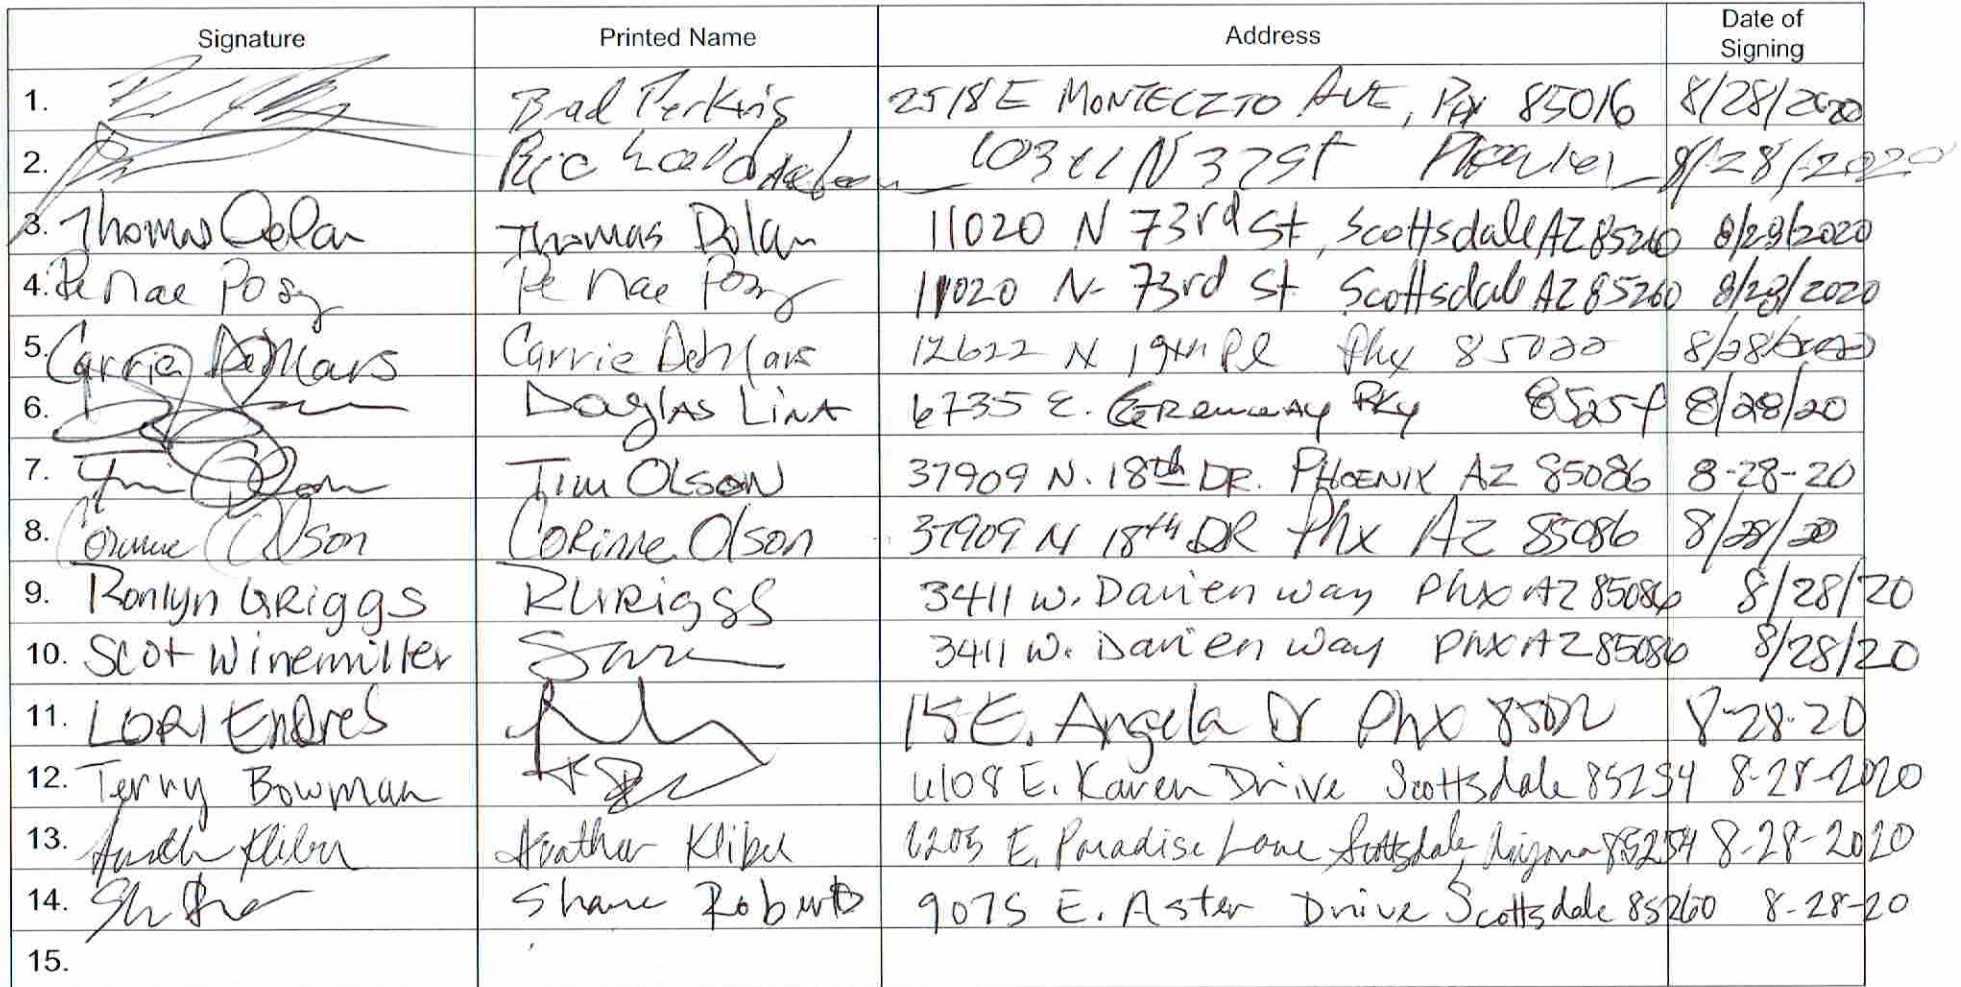 Signature Printed Name Address Date of Signing
1. Perkins 2518 E MONTECZTO AVE, PHX 85016 8/28/2020
2. N 37 St 8/28/2020
3. Thomas Dolan Thomas Dolan 11020 N 73rd St, Scottsdale AZ 85260 8/28/2020
4. Pe Nae Posey Pe Nae 11020 N. 73rd St Scottsdale AZ 85260 8/28/2020
5. Carrie DeMars Carrie DeMars 12622 N 19th Pl Phx 85022 8/28/2020
6. Douglas LINA 6735 E. Greenway Pky 8525 8/28/20
7. Tim Olson Tim OLSON 37909 N. 18th DR. PHOENIX AZ 85086 8-28-20
8. Corinne Olson Corinne Olson 37909 N 18th DR Phx AZ 85086 8/28/20
9. Ronlyn GRiggs 3411 W. Darien way Phx AZ 85086 8/28/20
10. Scot Winemiller 3411 W. Darien Way PhX AZ 85086 8/28/20
11. LORI EnDres 15 E. Angela Dr Phx 8-28-20
12. Terry Bowman E. Karen Drive Scottsdale 85254 8-28-2020
13. Heather E. Paradise Lane Scottsdale, Arizona 85254 8-28-2020
14. Shane Roberts 9075 E. Aster Drive Scottsdale 85260 8-28-20
15.